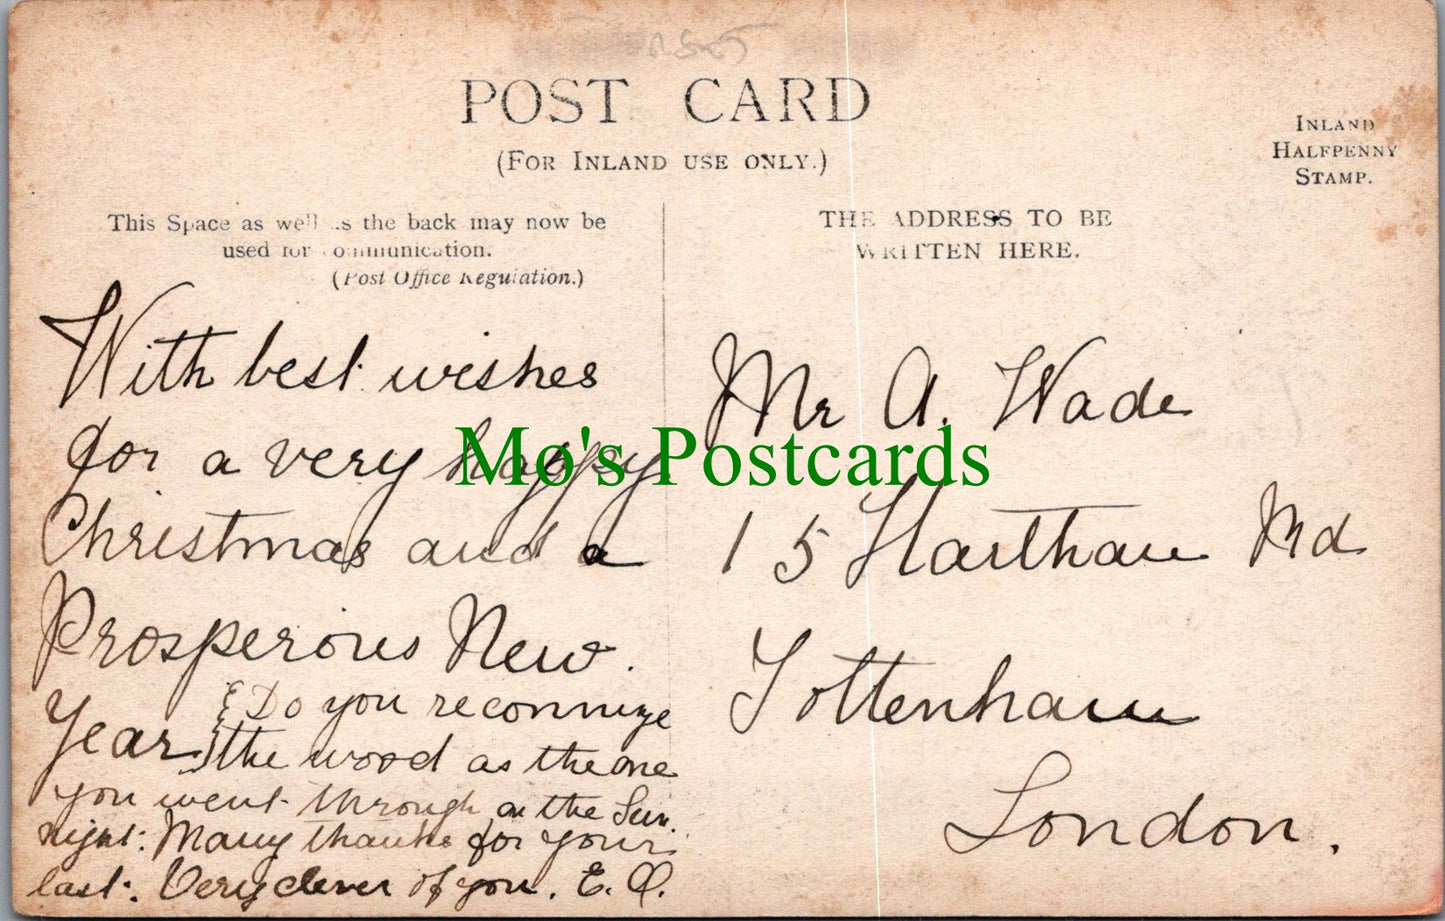 POST CARD
(FOR INLAND USE ONLY.)
INLAND
HALFPENNY
STAMP.
This Space as well as the back may now be
used for communication.
(Post Office Regulation.)
THE ADDRESS TO BE
WRITTEN HERE.
With best wishes
for a very happy
Christmas and a
Prosperous New.
Year
Do you reconnize
the wood as the one
you went through on the Sun.
night. Many thanks for yours
last. Very clever of you. E. Q.
Mr A. Wade
15 Hartham Rd
Tottenham
London.
Mo's Postcards